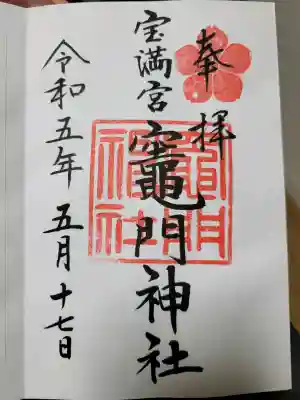 奉拝
宝満宮
竈門神社
令和五年五月十七日
竈門神社